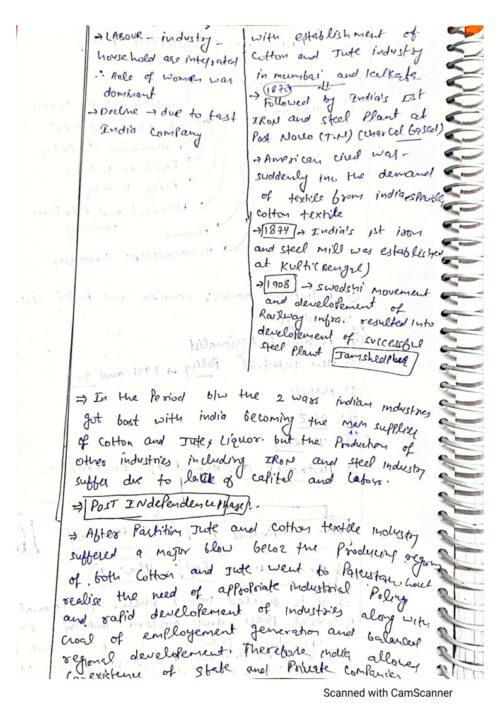 → LABOUR - industry -
household are integrated
∴ Role of women was
dominant
→ Decline → due to East
India Company
with establishment of
Cotton and Jute industry
in mumbai and kolkata
→ 1870
Followed by India's 1st
IRon and Steel Plant at
Post Novo (T.N) (charcol based)
→ American civil war -
suddenly inc the demand
of textile from india especially
cotton textile
→ 1874 → India's 1st iron
and steel mill was established
at Kulti (Bengal)
→ 1908 → swadshi movement
and developement of
Railway infra. resulted into
developement of successful
steel Plant Jamshedpur
⇒ In the Period b/w the 2 wars indian industries
got bost with india becoming the main supplies
of cotton and Jute, Liquor. but the Production of
other industries including IRon and steel industry
suffer due to lack of capital and Labour.
⇒ POST INdependence phase :
⇒ After Partition Jute and cotton textile industry
suffered a major blow becoz the Producing region
of both Cotton and Jute went to Pakistan
realise the need of appropriate industrial Policy
and rapid developement of industries along with
Goal of employement generation and balanced
regional developement. Therefore india allowed
Co-existence of state and Private Companies
Scanned with CamScanner